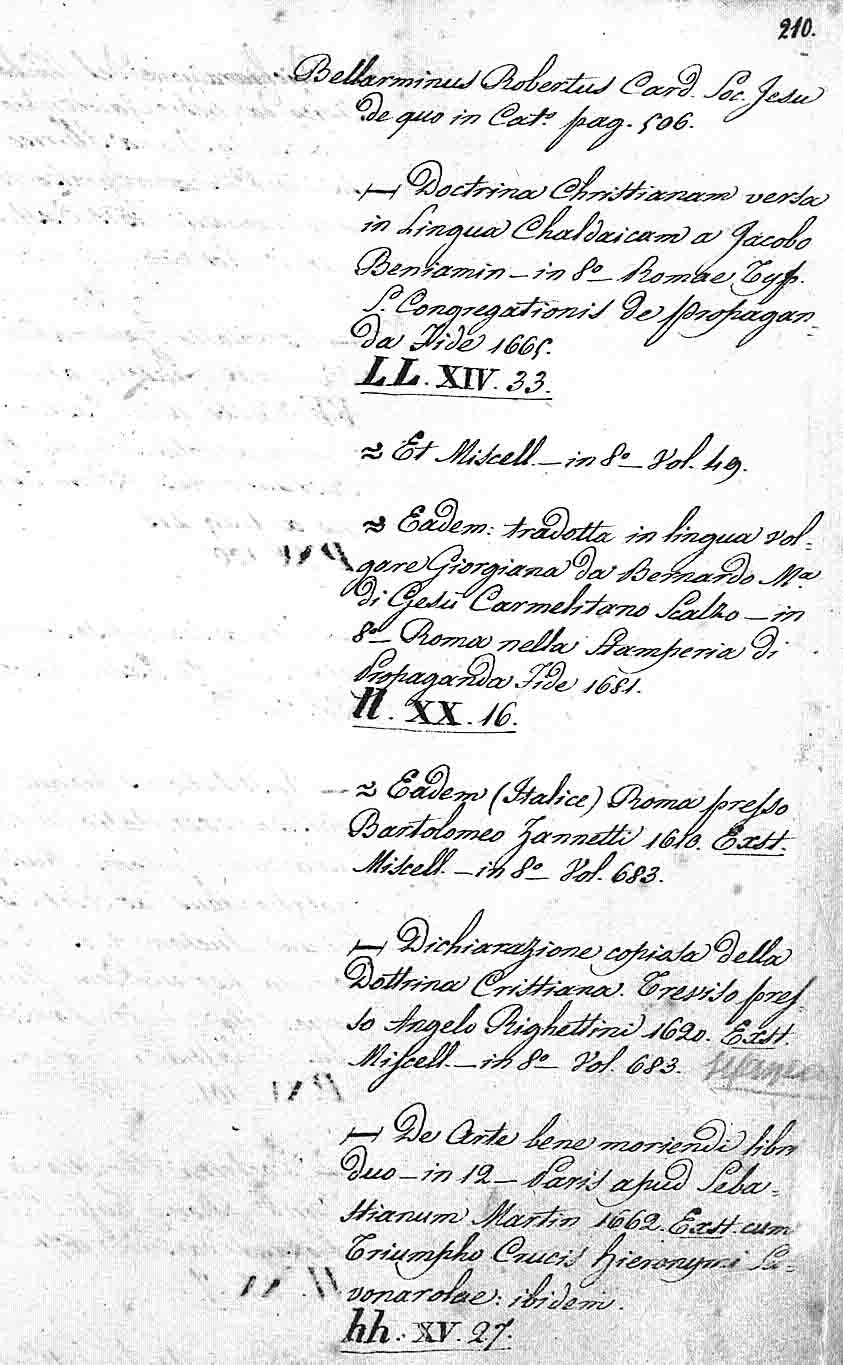 210.
Bellarminus Robertus Card. Soc. Jesu
de quo in Cat.º pag. 506.
— Doctrina Christianam versa
in Lingua Chaldaicam a Jacobo
Beniamin — in 8º — Romae Typ.
S. Congregationis de propagan=
da Fide 1665.
LL. XIV. 33.
~ Et Miscell. — in 8º — Vol. 49.
~ Eadem: tradotta in lingua vol=
gare Giorgiana da Bernardo Mª
di Gesù Carmelitano Scalzo — in
8º — Roma nella Stamperia di
Propaganda Fide 1681.
n. XX. 16.
~ Eadem (Italice) Roma presso
Bartolomeo Zannetti 1610. Exst.
Miscell. — in 8º — Vol. 683.
— Dichiarazione copiosa della
Dottrina Cristiana. Treviso pres=
so Angelo Righettini 1620. Exst.
Miscell. — in 8º — Vol. 683.
— De Arte bene moriendi libri
duo — in 12 — Paris apud Seba=
stianum Martin 1662. Exst. cum
Triumpho Crucis Hieronymi Sa=
vonarolae: ibidem.
hh. XV. 27.